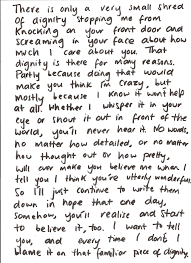 There is only a very small shred
of dignity stopping me from
knocking on your front door and
screaming in your face about how
much I care about you. That
dignity is there for many reasons.
Partly because doing that would
make you think I'm crazy, but
mostly because I know it wont help
at all. Whether I whisper it in your
eye or shout it out in front of the
world, you'll never hear it. No words,
no matter how detailed, or no matter
how thought out or how pretty,
will ever make you believe me when I
tell you I think you're utterly wonderful.
So I'll just continue to write them
down in hope that one day,
somehow, you'll realize and start
to believe it, too. I want to tell
you, and every time I don't I
blame it on that familiar piece of dignity.